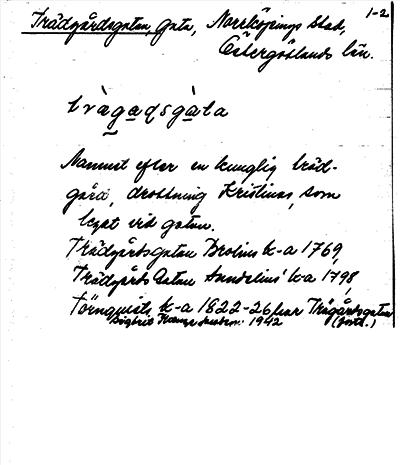 Trädgårdsgatan, Gata, Norrköpings stad, 1-2
Östergötlands län.
trägaḍsgàta
Namnet efter en kunglig träd-
gård, drottning Kristinas, som
legat vid gatan.
Trädgårdsgatan Brolins k-a 1769,
Trädgårds Gatan Sundelius' k-a 1798,
Törnquists k-a 1822-26 har Trägårdsgatan
1942 (forts.)